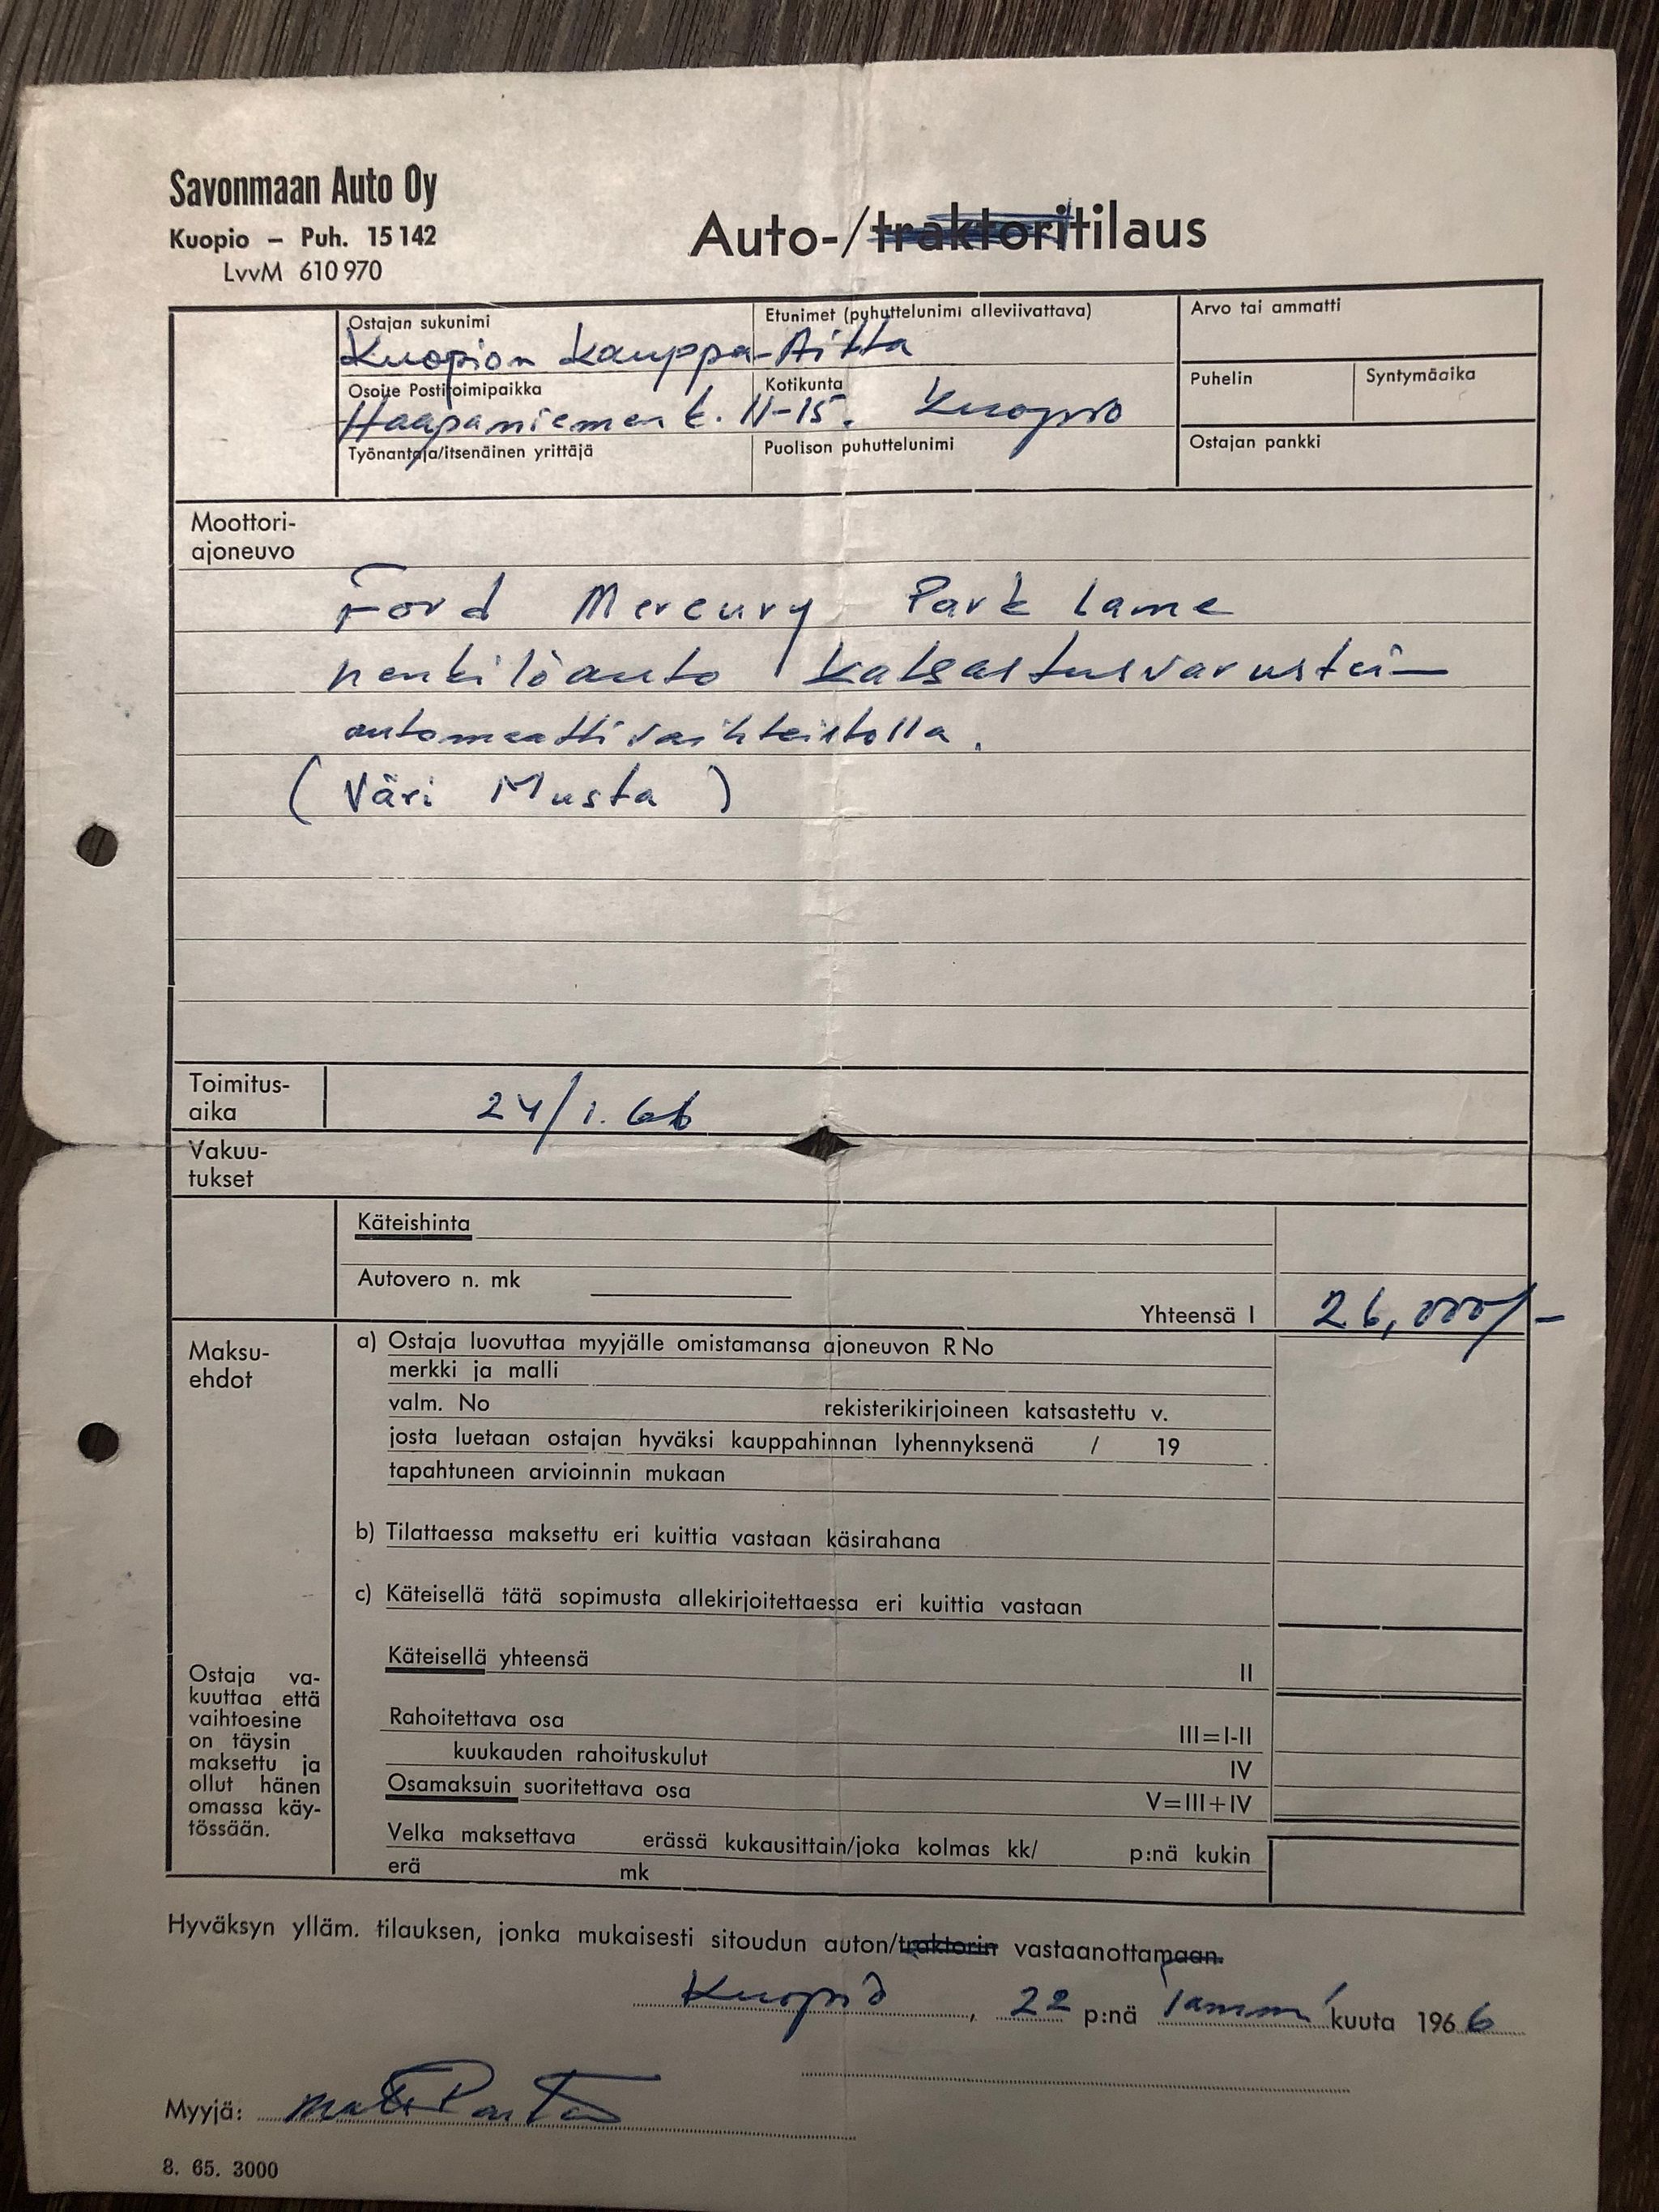 Savonmaan Auto Oy
Kuopio – Puh. 15142
LvvM 610970
Auto-/traktoritilaus
Ostajan sukunimi
Etunimet (puhuttelunimi alleviivattava)
Arvo tai ammatti
Kuopion Kauppa-Aitta
Osoite Postitoimipaikka
Kotikunta
Puhelin
Syntymäaika
Haapaniemenk. 11-15. Kuopio
Työnantaja/itsenäinen yrittäjä
Puolison puhuttelunimi
Ostajan pankki
Moottori-
ajoneuvo
Ford Mercury Park Lane
henkilöauto katsastusvarustein
automaattivaihteistolla.
(Väri Musta)
Toimitus-
aika
24/1.66
Vakuu-
tukset
Käteishinta
Autovero n. mk
Yhteensä I 26,000/-
Maksu-
ehdot
a) Ostaja luovuttaa myyjälle omistamansa ajoneuvon RNo
merkki ja malli
valm. No rekisterikirjoineen katsastettu v.
josta luetaan ostajan hyväksi kauppahinnan lyhennyksenä / 19
tapahtuneen arvioinnin mukaan
b) Tilattaessa maksettu eri kuittia vastaan käsirahana
c) Käteisellä tätä sopimusta allekirjoitettaessa eri kuittia vastaan
Käteisellä yhteensä II
Ostaja va-
kuuttaa että
vaihtoesine
on täysin
maksettu ja
ollut hänen
omassa käy-
tössään.
Rahoitettava osa III=I-II
kuukauden rahoituskulut IV
Osamaksuin suoritettava osa V=III+IV
Velka maksettava erässä kukausittain/joka kolmas kk/ p:nä kukin
erä mk
Hyväksyn ylläm. tilauksen, jonka mukaisesti sitoudun auton/traktorin vastaanottamaan.
Kuopio, 22 p:nä tammi kuuta 1966
Myyjä:
8. 65. 3000